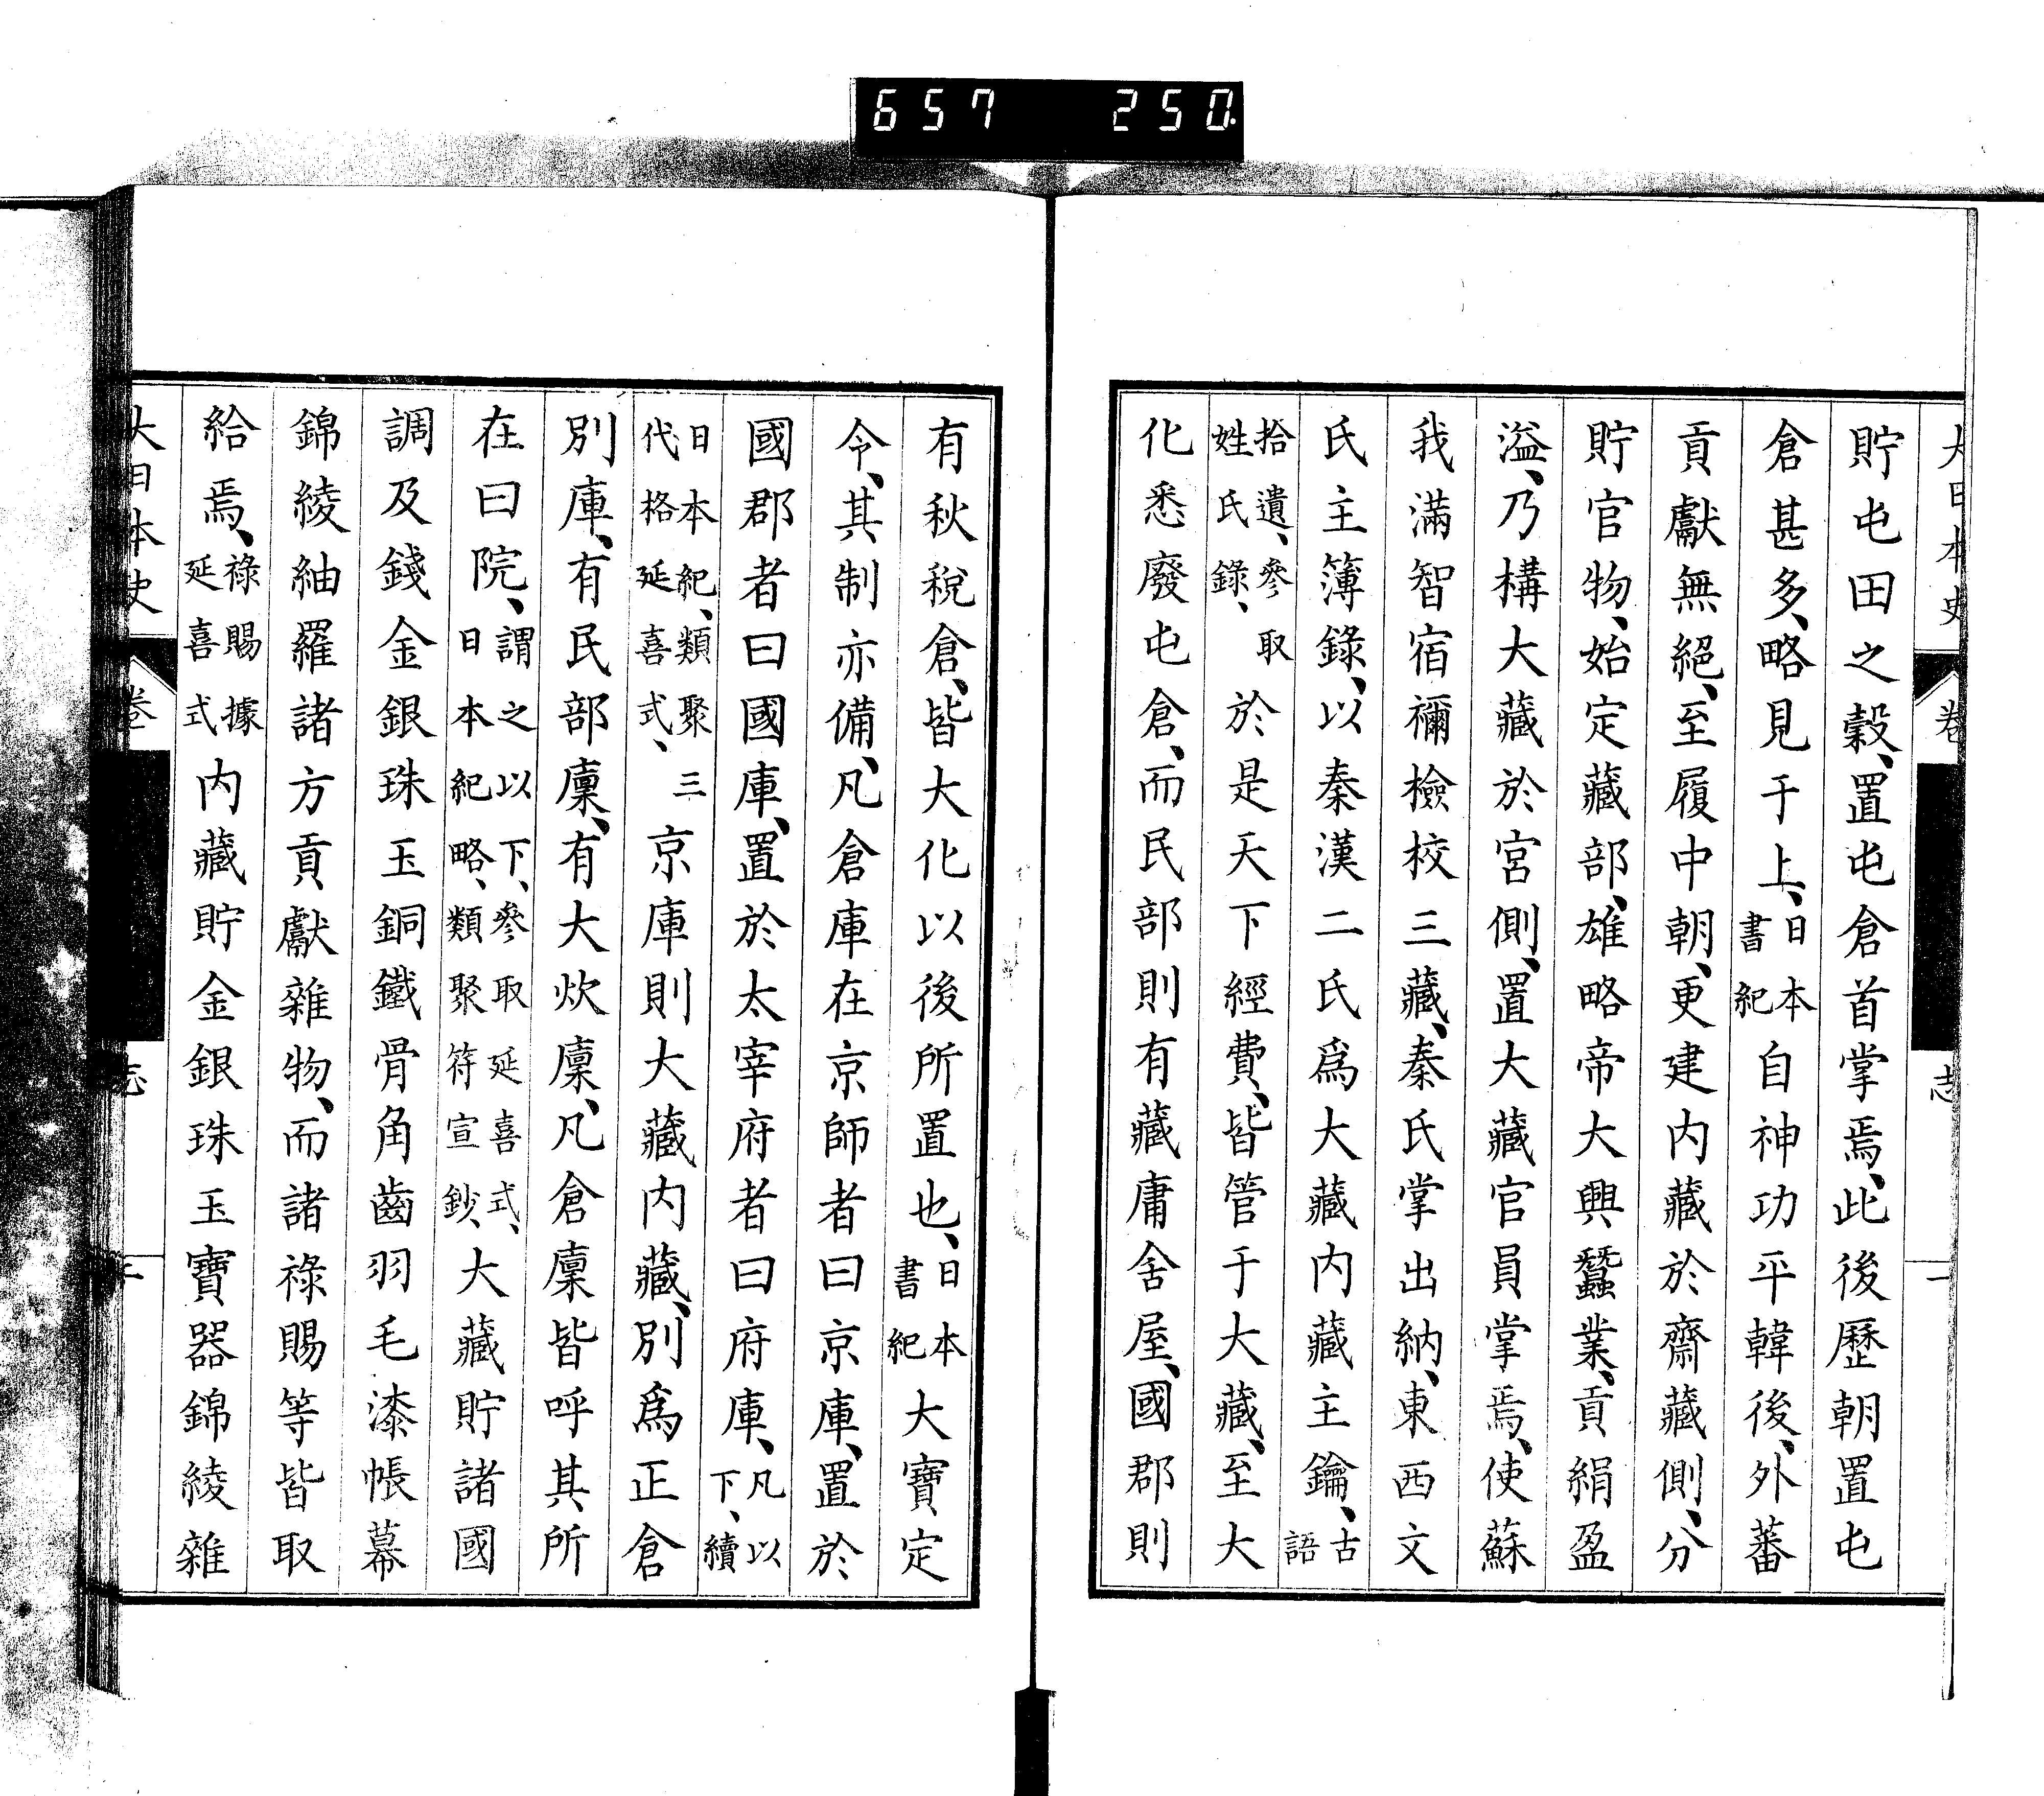 657 250
大日本史 卷 志 一
貯屯田之穀、置屯倉首掌焉、此後歷朝置屯
倉甚多、略見于上、日本書紀自神功平韓後、外蕃
貢獻無絕、至履中朝、更建內藏於齋藏側、分
貯官物、始定藏部、雄略帝大興蠶業、貢絹盈
溢、乃構大藏於宮側、置大藏官員掌焉、使蘇
我滿智宿禰檢校三藏、秦氏掌出納、東西文
氏主簿錄、以秦漢二氏爲大藏內藏主鑰、古語
拾遺、參取姓氏錄、於是天下經費、皆管于大藏、至大
化悉廢屯倉、而民部則有藏庸舍屋、國郡則
有秋稅倉、皆大化以後所置也、日本書紀大寶定
令、其制亦備、凡倉庫在京師者曰京庫、置於
國郡者曰國庫、置於太宰府者曰府庫、凡以下、續
日本紀、類聚三代格延喜式、京庫則大藏內藏、別爲正倉
別庫、有民部廩、有大炊廩、凡倉廩皆呼其所
在曰院、謂之以下、參取延喜式、日本紀略、類聚符宣鈔、大藏貯諸國
調及錢金銀珠玉銅鐵骨角齒羽毛漆帳幕
錦綾紬羅諸方貢獻雜物、而諸祿賜等皆取
給焉、祿賜據延喜式內藏貯金銀珠玉寶器錦綾雜
大日本史 卷 志